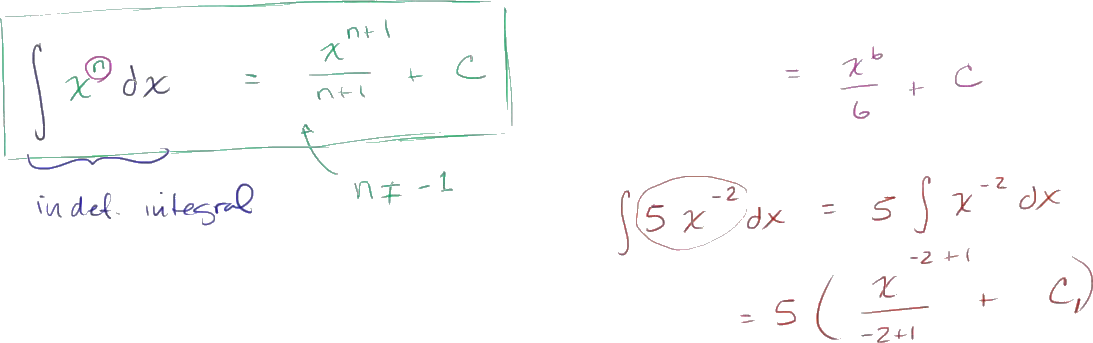 ∫ xⁿ dx = xⁿ⁺¹/(n+1) + C
n ≠ -1
indef. integral
= x⁶/6 + C
∫ 5 x⁻² dx = 5 ∫ x⁻² dx
= 5 ( x⁻²⁺¹/(-2+1) + C₁)